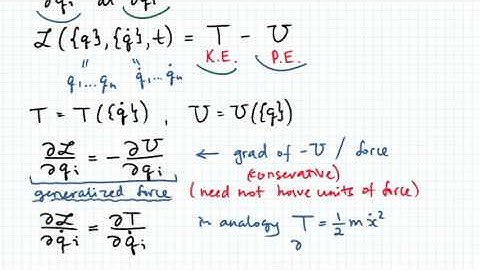 ∂q_i dt ∂q̇_i
ℒ({q}, {q̇}, t) = T - U
" " K.E. P.E.
q_1...q_n q̇_1...q̇_n
T = T({q̇}), U = U({q})
∂ℒ/∂q_i = -∂U/∂q_i ← grad of -U / force
(conservative)
generalized force (need not have units of force)
∂ℒ/∂q̇_i = ∂T/∂q̇_i in analogy T = 1/2 m ẋ²
∂